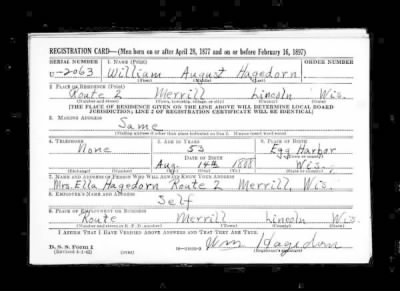 REGISTRATION CARD—(Men born on or after April 28, 1877 and on or before February 16, 1897)
SERIAL NUMBER 1. NAME (Print) ORDER NUMBER
U-2063 William August Hagedorn
(First) (Middle) (Last)
2. PLACE OF RESIDENCE (Print)
Route 2 Merrill Lincoln Wis.
(Number and street) (Town, township, village, or city) (County) (State)
[THE PLACE OF RESIDENCE GIVEN ON THE LINE ABOVE WILL DETERMINE LOCAL BOARD
JURISDICTION; LINE 2 OF REGISTRATION CERTIFICATE WILL BE IDENTICAL]
3. MAILING ADDRESS
Same
[Mailing address if other than place indicated on line 2. If same insert word same]
4. TELEPHONE 5. AGE IN YEARS 6. PLACE OF BIRTH
None 53 Egg Harbor
DATE OF BIRTH
Aug. 14th 1888 Wis.
7. NAME AND ADDRESS OF PERSON WHO WILL ALWAYS KNOW YOUR ADDRESS
Mrs. Ella Hagedorn Route 2 Merrill, Wis.
8. EMPLOYER'S NAME AND ADDRESS
Self
9. PLACE OF EMPLOYMENT OR BUSINESS
Route Merrill Lincoln Wis.
(Number and street or R. F. D. number) (Town) (County) (State)
I AFFIRM THAT I HAVE VERIFIED ABOVE ANSWERS AND THAT THEY ARE TRUE.
D. S. S. Form 1 Wm Hagedorn
(Revised 4-1-42) (over) (Registrant's signature)